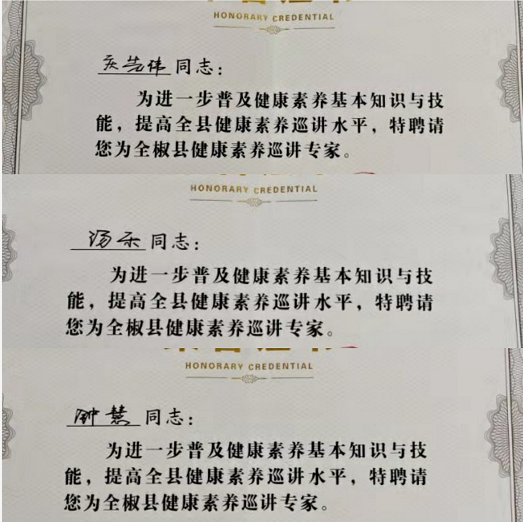 HONORARY CREDENTIAL
同志：
为进一步普及健康素养基本知识与技
能，提高全县健康素养巡讲水平，特聘请
您为全椒县健康素养巡讲专家。
HONORARY CREDENTIAL
汤乐 同志：
为进一步普及健康素养基本知识与技
能，提高全县健康素养巡讲水平，特聘请
您为全椒县健康素养巡讲专家。
HONORARY CREDENTIAL
钟慧 同志：
为进一步普及健康素养基本知识与技
能，提高全县健康素养巡讲水平，特聘请
您为全椒县健康素养巡讲专家。